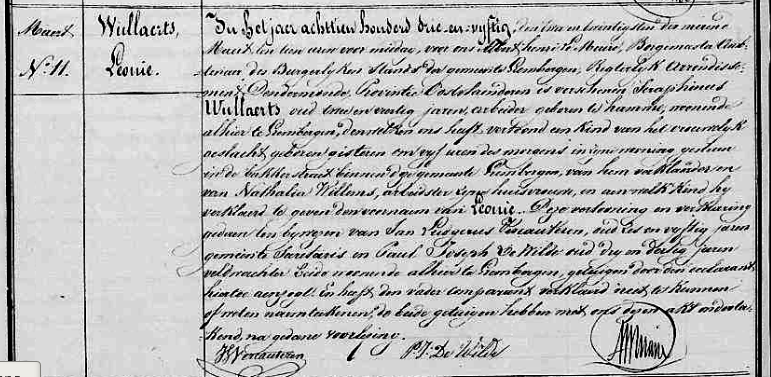 Maert
N.º 11.
Wullaerts,
Leonie.
In het jaer achttien honderd drie-en-vyftig, den twee en twintigsten der maend
Maert ten tien uren voor middag, voor ons Albert henri De Maere, Borgemeester Amb-
tenaar des Burgerlyken Stands der gemeente Grembergen, Regterlyk Arrondisse-
ment Dendermonde, Provintie Oostvlaenderen is verschenen Seraphinus
Wullaerts oud twee en veertig jaren, arbeider geboren te hamme, woonende
alhier te Grembergen, denwelken ons heeft vertoond een kind van het vrouwelyk
geslacht geboren gisteren om vyf uren des morgens in zyne wooning gestaen
in de kerkstraet binnen de gemeente Grembergen, van hem verklaerder en
van Nathalia Willems, arbeidster zyne huisvrouw, en aen welk kind hy
verklaerd te geven den voornaem van Leonie. Deze vertooning en verklaring
gedaen ten bywezen van Jan Ludgerus Vercauteren, oud zes en vyftig jaren
gemeente Secretaris en Paul Joseph De Wilde oud dry en dertig jaren
veldwachter beide woonende alhier te Grembergen, getuigen door den declarant
hiertoe aenzogt. En heeft den vader comparant verklaerd niet te kunnen
of weten naemteekenen, de beide getuigen hebben met ons dezen akt onderte-
kend, na gedane voorlezing.
Vercauteren P. J. De Wilde